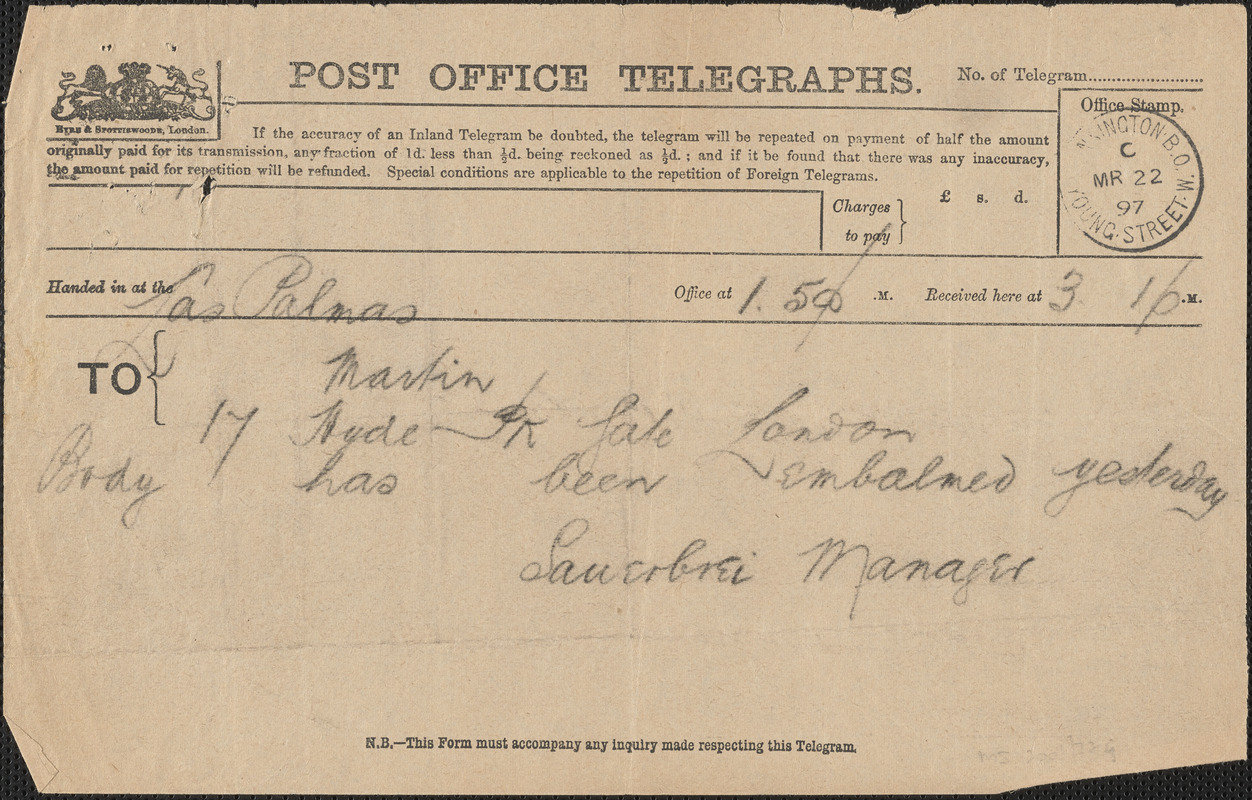 POST OFFICE TELEGRAPHS.
No. of Telegram
EYRE & SPOTTISWOODE, London.
Office Stamp.
If the accuracy of an Inland Telegram be doubted, the telegram will be repeated on payment of half the amount
originally paid for its transmission, any fraction of 1d. less than ½d. being reckoned as ½d.; and if it be found that there was any inaccuracy,
the amount paid for repetition will be refunded. Special conditions are applicable to the repetition of Foreign Telegrams.
NSINGTON·B.O. W.
C
MR 22
97
YOUNG·STREET·
Charges to pay
£ s. d.
Handed in at the Las Palmas Office at 1.50 .M. Received here at 3 16 .M.
TO
Martin
17 Hyde Pk Gate London
Body has been embalmed yesterday
Sauerbrei Manager
N.B.—This Form must accompany any inquiry made respecting this Telegram.